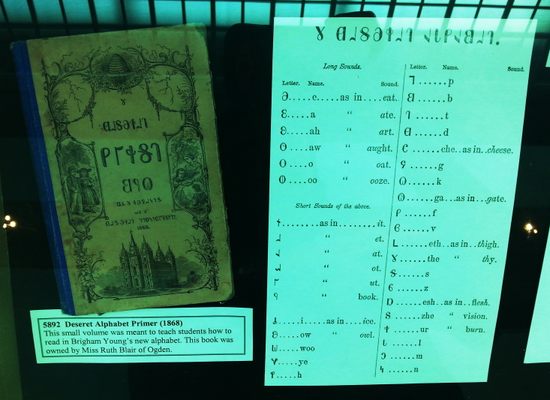 𐐜
𐐔𐐇𐐝𐐀𐐡𐐇𐐓
𐐙𐐊𐐡𐐝𐐓
𐐒𐐋𐐗
1868.
5892 Deseret Alphabet Primer (1868)
This small volume was meant to teach students how to
read in Brigham Young's new alphabet. This book was
owned by Miss Ruth Blair of Ogden.
𐐜 𐐔𐐇𐐝𐐀𐐡𐐇𐐓 𐐈𐐢𐐙𐐈𐐒𐐇𐐓.
Long Sounds.
Letter. Name. Sound.
𐐀.....e....as in....eat.
𐐁.....a “ ate.
𐐂.....ah “ art.
𐐃.....aw “ aught.
𐐄.....o “ oat.
𐐅.....oo “ ooze.
Short Sounds of the above.
𐐆.........as in......it.
𐐇 “ et.
𐐈 “ at.
𐐉 “ ot.
𐐊 “ ut.
𐐋 “ book.
𐐌.....i....as in....ice.
𐐍....ow “ owl.
𐐎....woo
𐐏....ye
𐐐.....h
Letter. Name. Sound.
𐐑......p
𐐒......b
𐐓......t
𐐔......d
𐐕......che..as in..cheese.
𐐖......g
𐐗......k
𐐘......ga...as in...gate.
𐐙......f
𐐚......v
𐐛......eth..as in..thigh.
𐐜......the “ thy.
𐐝......s
𐐞......z
𐐟......esh..as in..flesh.
𐐠......zhe “ vision.
𐐡......ur “ burn.
𐐢......l
𐐣......m
𐐤......n